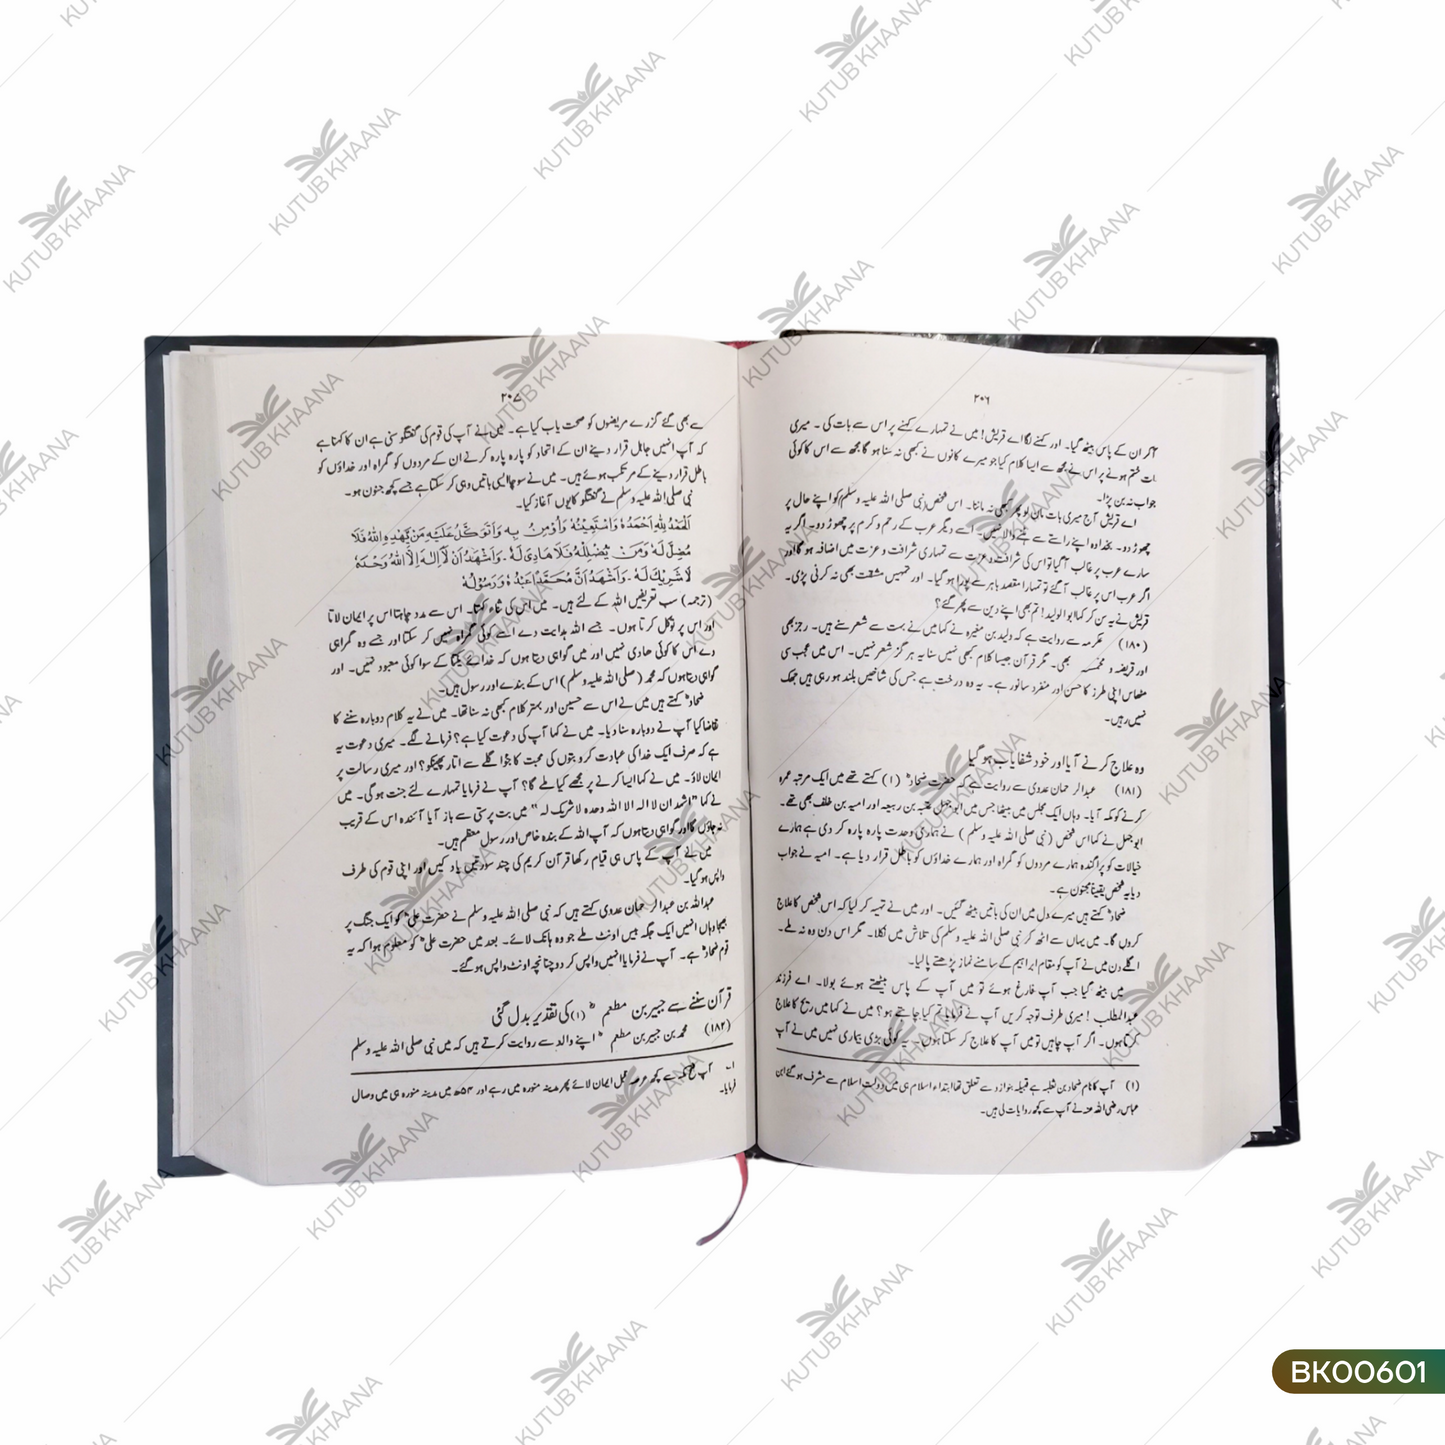 ۲۰۶
آکر ان کے پاس بیٹھ گیا۔ اور کہنے لگا اے قریش! میں نے تمہارے کہنے پر اس سے بات کی۔ میری
بات ختم ہونے پر اس نے مجھ سے ایسا کلام کیا جو میرے کانوں نے کبھی نہ سنا ہو گا مجھ سے اس کا کوئی
جواب نہ بن پڑا۔
اے قریش آج میری بات مان لو پھر کبھی نہ ماننا۔ اس شخص (نبی صلی اللہ علیہ وسلم) کو اپنے حال پر
چھوڑ دو۔ بخدا وہ اپنے راستے سے ہٹنے والا نہیں۔ اسے دیگر عرب کے رحم و کرم پر چھوڑ دو۔ اگر یہ
سارے عرب پر غالب آ گیا تو اس کی شرافت و عزت سے تمہاری شرافت و عزت میں اضافہ ہو گا اور
اگر عرب اس پر غالب آ گئے تو تمہارا مقصد باہر سے پورا ہو گیا۔ اور تمہیں مشقت بھی نہ کرنی پڑی۔
قریش نے یہ سن کر کہا ابو الولید! تم بھی اپنے دین سے پھر گئے؟
(۱۸۰) عکرمہ سے روایت ہے کہ ولید بن مغیرہ نے کہا میں نے بہت سے شعر سنے ہیں۔ رجز بھی
اور قریضہ و مخمسہ بھی۔ مگر قرآن جیسا کلام کبھی نہیں سنا یہ ہر گز شعر نہیں۔ اس میں عجب سی
مٹھاس اپنی طرز کا حسن اور منفرد سا نور ہے۔ یہ وہ درخت ہے جس کی شاخیں بلند ہو رہی ہیں جھک
نہیں رہیں۔
وہ علاج کرنے آیا اور خود شفایاب ہو گیا
(۱۸۱) عبدالرحمان عدوی سے روایت ہے کہ حضرت ضمادؓ (۱) کہتے تھے میں ایک مرتبہ عمرہ
کرنے کو مکہ آیا۔ وہاں ایک مجلس میں بیٹھا جس میں ابو جہل عتبہ بن ربیعہ اور امیہ بن خلف بھی تھے۔
ابو جہل نے کہا اس شخص (نبی صلی اللہ علیہ وسلم) نے ہماری وحدت پارہ پارہ کر دی ہے ہمارے
خیالات کو پراگندہ ہمارے مردوں کو گمراہ اور ہمارے خداؤں کو باطل قرار دیا ہے۔ امیہ نے جواب
دیا یہ شخص یقینا مجنون ہے۔
ضمادؓ کہتے ہیں میرے دل میں ان کی باتیں بیٹھ گئیں۔ اور میں نے تہیہ کر لیا کہ اس شخص کا علاج
کروں گا۔ میں یہاں سے اٹھ کر نبی صلی اللہ علیہ وسلم کی تلاش میں نکلا۔ مگر اس دن وہ نہ ملے۔
اگلے دن میں نے آپ کو مقام ابراہیم کے سامنے نماز پڑھتے پا لیا۔
میں بیٹھ گیا جب آپ فارغ ہوئے تو میں آپ کے پاس بیٹھتے ہوئے بولا۔ اے فرزند
عبدالمطلب! میری طرف توجہ کریں آپ نے فرمایا تم کیا چاہتے ہو؟ میں نے کہا میں ریح کا علاج
کرتا ہوں۔ اگر آپ چاہیں تو میں آپ کا علاج کر سکتا ہوں۔ یہ کوئی بڑی بیماری نہیں میں نے آپ
(۱) آپ کا نام ضماد بن ثعلبہ ہے قبیلہ بنو ازد سے تعلق تھا ابتداء اسلام ہی میں دولت اسلام سے مشرف ہو گئے ابن
عباس رضی اللہ عنہ نے آپ سے کچھ روایات لی ہیں۔
۲۰۷
سے بھی گئے گزرے مریضوں کو صحت یاب کیا ہے۔ میں نے آپ کی قوم کی گفتگو سنی ہے ان کا کہنا ہے
کہ آپ انہیں جاہل قرار دینے ان کے اتحاد کو پارہ پارہ کرنے ان کے مردوں کو گمراہ اور خداؤں کو
باطل قرار دینے کے مرتکب ہوئے ہیں۔ میں نے سوچا ایسی باتیں وہی کر سکتا ہے جسے کچھ جنون ہو۔
نبی صلی اللہ علیہ وسلم نے گفتگو کا یوں آغاز کیا۔
اَلْحَمْدُ لِلّٰهِ اَحْمَدُهٗ وَاَسْتَعِيْنُهٗ وَاُؤْمِنُ بِهٖ وَاَتَوَكَّلُ عَلَيْهِ مَنْ يَّهْدِهِ اللّٰهُ فَلَا
مُضِلَّ لَهٗ وَمَنْ يُّضْلِلْهُ فَلَا هَادِىَ لَهٗ۔ وَاَشْهَدُ اَنْ لَّا اِلٰهَ اِلَّا اللّٰهُ وَحْدَهٗ
لَا شَرِيْكَ لَهٗ۔ وَاَشْهَدُ اَنَّ مُحَمَّدًا عَبْدُهٗ وَرَسُوْلُهٗ
(ترجمہ) سب تعریفیں اللہ کے لئے ہیں۔ میں اس کی ثناء کہتا۔ اس سے مدد چاہتا اس پر ایمان لاتا
اور اس پر توکل کرتا ہوں۔ جسے اللہ ہدایت دے اسے کوئی گمراہ نہیں کر سکتا اور جسے وہ گمراہی
دے اس کا کوئی ھادی نہیں اور میں گواہی دیتا ہوں کہ خدائے یکتا کے سوا کوئی معبود نہیں۔ اور
گواہی دیتا ہوں کہ محمد (صلی اللہ علیہ وسلم) اس کے بندے اور رسول ہیں۔
ضمادؓ کہتے ہیں میں نے اس سے حسین اور بہتر کلام کبھی نہ سنا تھا۔ میں نے یہ کلام دوبارہ سننے کا
تقاضا کیا آپ نے دوبارہ سنا دیا۔ میں نے کہا آپ کی دعوت کیا ہے؟ فرمانے لگے۔ میری دعوت یہ
ہے کہ صرف ایک خدا کی عبادت کرو بتوں کی محبت کا جوا گلے سے اتار پھینکو؟ اور میری رسالت پر
ایمان لاؤ۔ میں نے کہا ایسا کرنے پر مجھے کیا ملے گا؟ آپ نے فرمایا تمہارے لئے جنت ہو گی۔ میں
نے کہا "اشہد ان لا الہ الا اللہ وحدہ لا شریک لہ" میں بت پرستی سے باز آیا آئندہ اس کے قریب
نہ جاؤں گا اور گواہی دیتا ہوں کہ آپ اللہ کے بندہ خاص اور رسول معظم ہیں۔
میں نے آپ کے پاس ہی قیام رکھا قرآن کریم کی چند سورتیں یاد کیں اور اپنی قوم کی طرف
واپس ہو گیا۔
عبداللہ بن عبدالرحمان عدوی کہتے ہیں کہ نبی صلی اللہ علیہ وسلم نے حضرت علیؓ کو ایک جنگ پر
بھیجا وہاں انہیں ایک جگہ بیس اونٹ ملے جو وہ ہانک لائے۔ بعد میں حضرت علیؓ کو معلوم ہوا کہ یہ
قوم ضمادؓ ہے۔ آپ نے فرمایا انہیں واپس کر دو چنانچہ اونٹ واپس ہو گئے۔
قرآن سننے سے جبیر بن مطعمؓ (۱) کی تقدیر بدل گئی
(۱۸۲) محمد بن جبیر بن مطعمؓ اپنے والد سے روایت کرتے ہیں کہ میں نبی صلی اللہ علیہ وسلم
۱۔ آپ فتح مکہ سے کچھ عرصہ قبل ایمان لائے پھر مدینہ منورہ میں رہے اور ۵۴ھ میں مدینہ منورہ ہی میں وصال
فرمایا۔
KUTUB KHAANA
BK00601